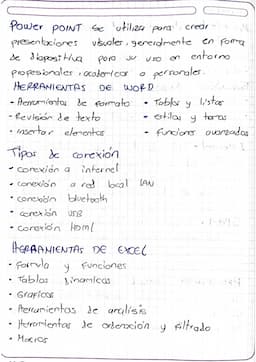 Power POINT se utiliza para crear
presentaciones visuales, generalmente en forma
de diapositiva para su uso en entorno
profesionales, academicos o personales.
HERRAMIENTAS DE WORD
• Herramientas de formato • Tablas y listas
• Revisión de texto • estilos y temas
• insertar elementos • funciones avanzadas
Tipos de conexión
• conexión a internet
• conexión a red local LAN
• conexión bluetooth
• conexión USB
• conexión HDMI
HERRAMIENTAS DE EXCEL
• formula y funciones
• Tablas Dinamicas
• Graficos
• Herramientas de analisis
• Herramientas de ordenación y filtrado
• Macros